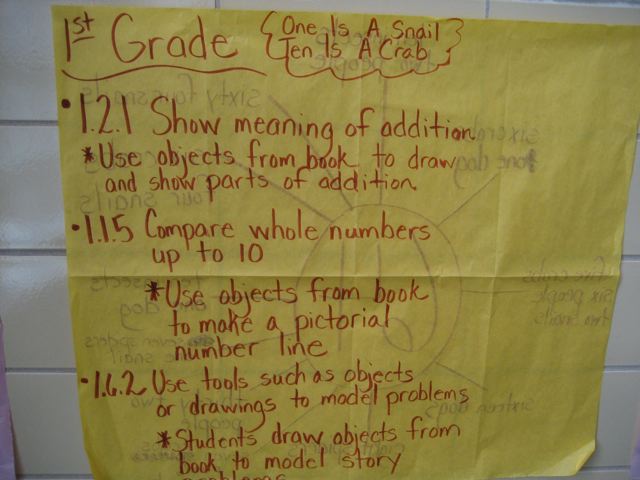 1st Grade
One Is A Snail
Ten Is A Crab
• 1.2.1 Show meaning of addition.
* Use objects from book to draw
and show parts of addition.
• 1.1.5 Compare whole numbers
up to 10
* Use objects from book
to make a pictorial
number line
• 1.6.2 Use tools such as objects
or drawings to model problems
* Students draw objects from
book to model story
problems